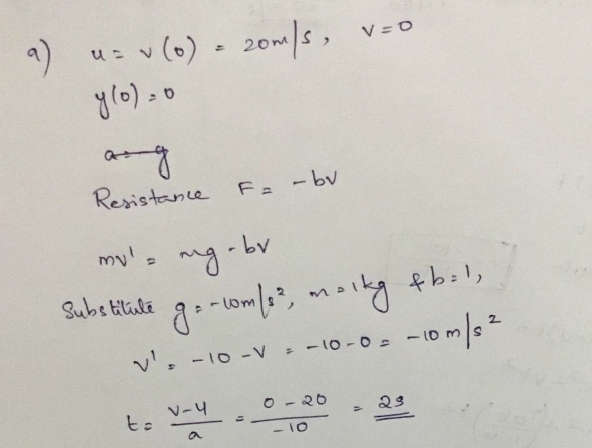 a) u = v(0) = 20m/s, v=0
y(0)=0
a=g
Resistance F = -bv
mv' = mg-bv
Substitute g=-10m/s², m=1kg & b=1,
v' = -10-v = -10-0 = -10 m/s²
t = v-u/a = 0-20/-10 = 2s